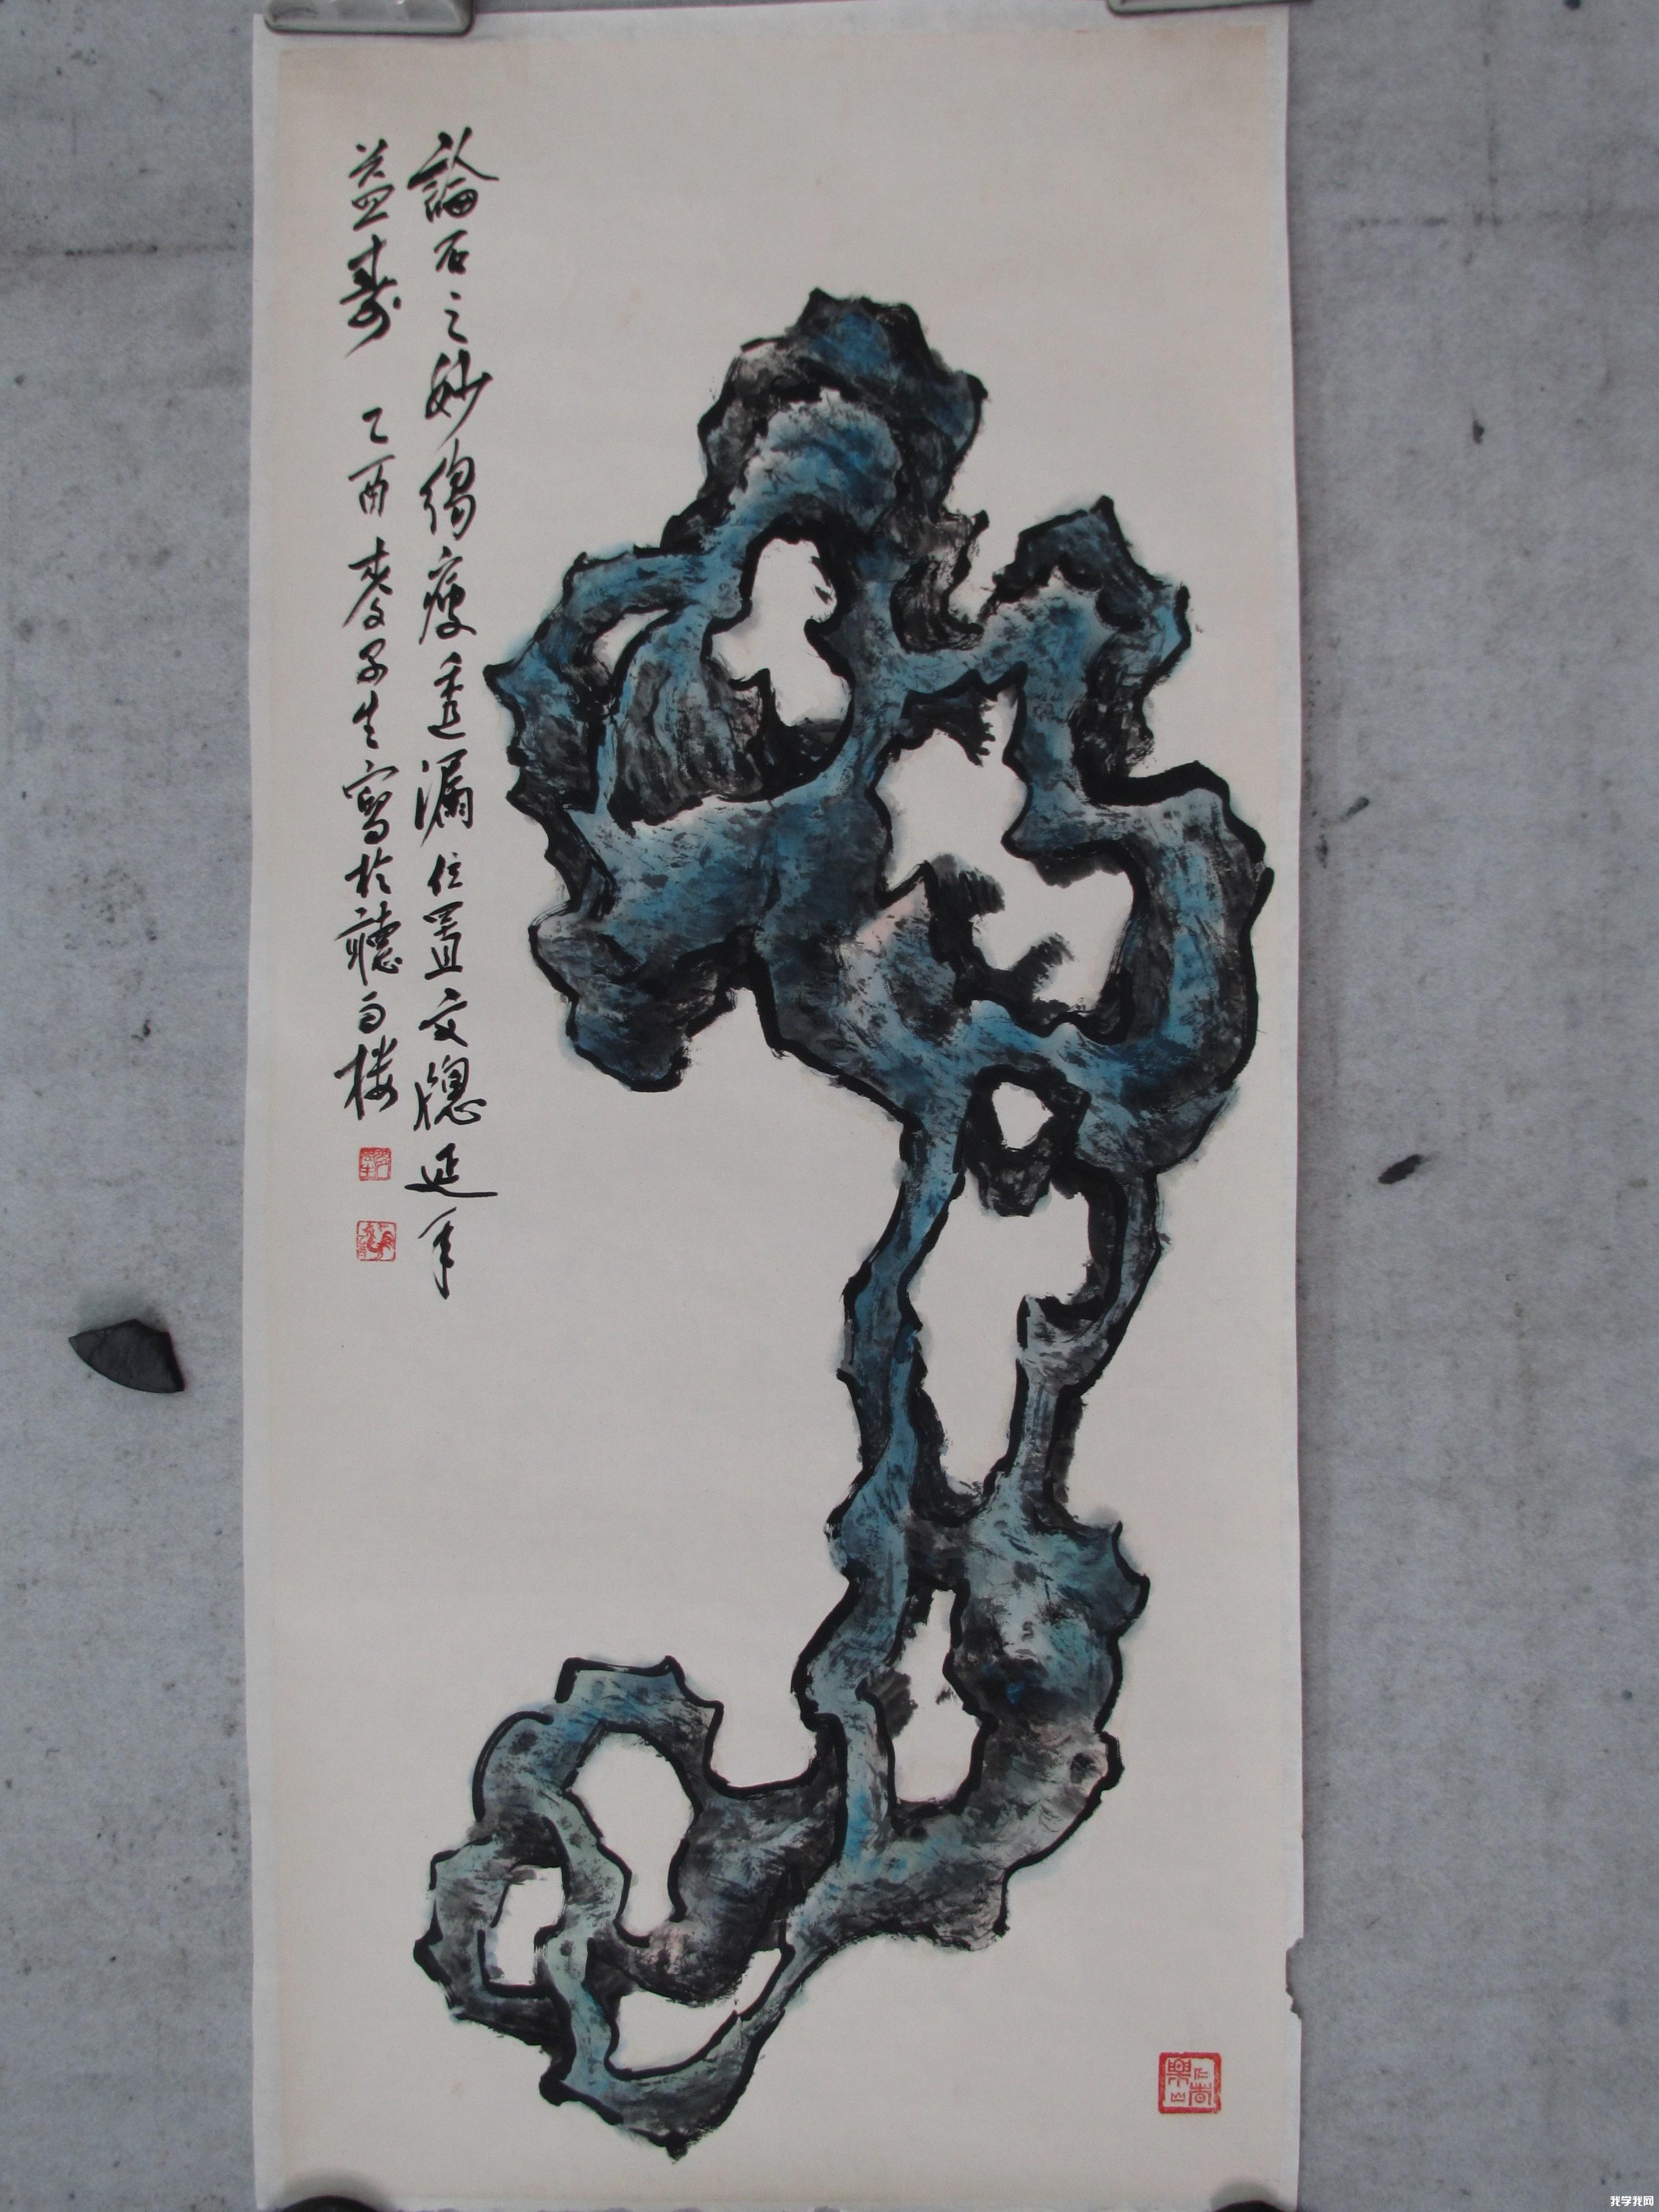 論石之妙得瘦透漏位置交隱延年
益壽 乙酉春子生寫於聽雨樓
仁者樂山
我学我网